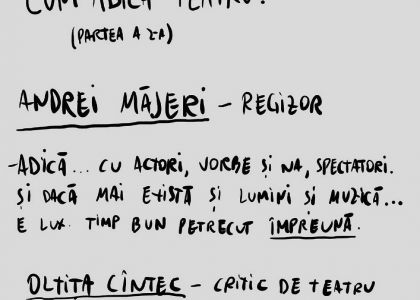 CUM ADICĂ TEATRU?
(PARTEA A 2-A)
ANDREI MĂJERI - REGIZOR
-ADICĂ... CU ACTORI, VORBE ȘI NA, SPECTATORI.
ȘI DACĂ MAI EXISTĂ ȘI LUMINI ȘI MUZICĂ...
E LUX. TIMP BUN PETRECUT ÎMPREUNĂ.
OLTIȚA CÎNTEC - CRITIC DE TEATRU